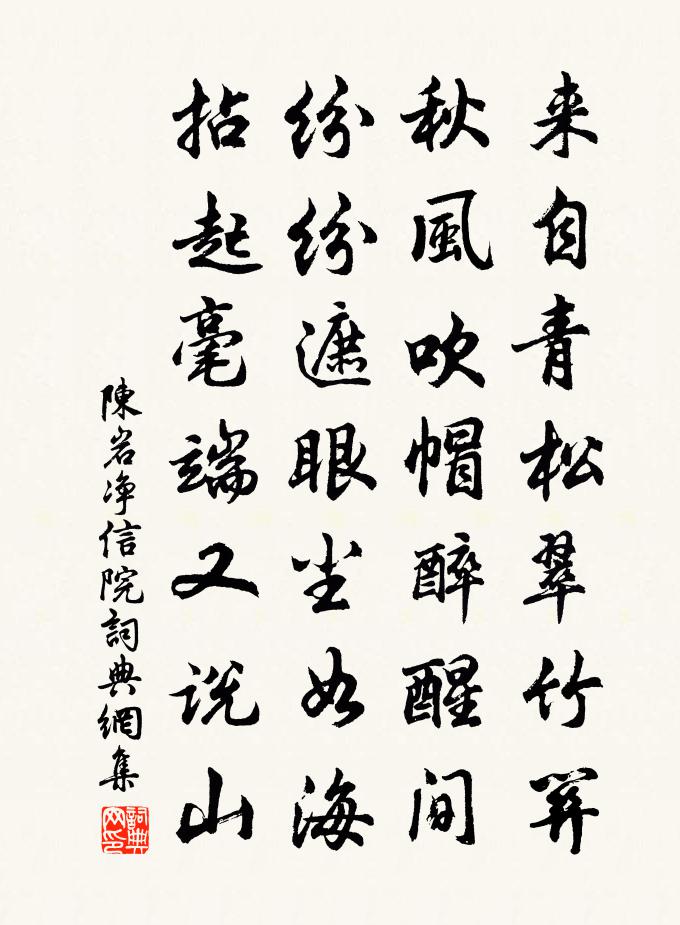 来自青松翠竹關
秋風吹帽醉醒間
紛紛遮眼塵如海
拈起毫端又説山
陳岩净信院詞典網集
詞典网印